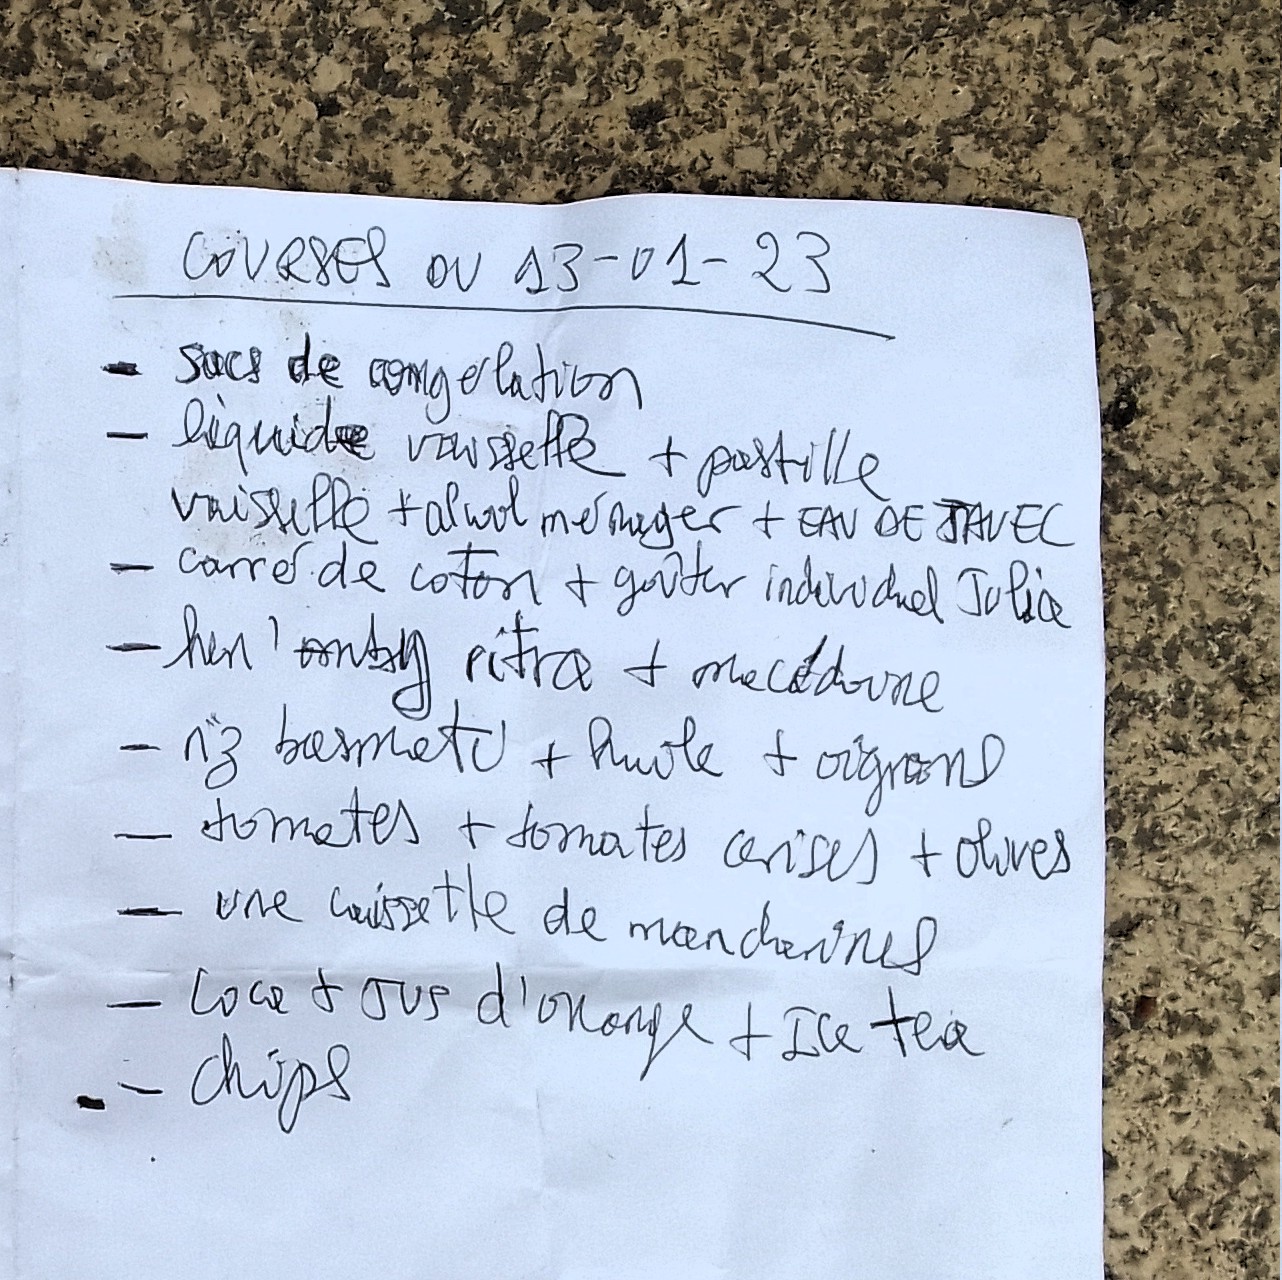 COURSES DU 13-01-23
- sacs de congelation
- liquide vaisselle + pastille
vaisselle + alcool ménager + EAU DE JAVEC
- carré de coton + goûter individuel Julia
- + macédoine
- riz basmati + huile + oignons
- tomates + tomates cerises + olives
- une caissette de mandarines
- Coca + Jus d'orange + Ice tea
- chips